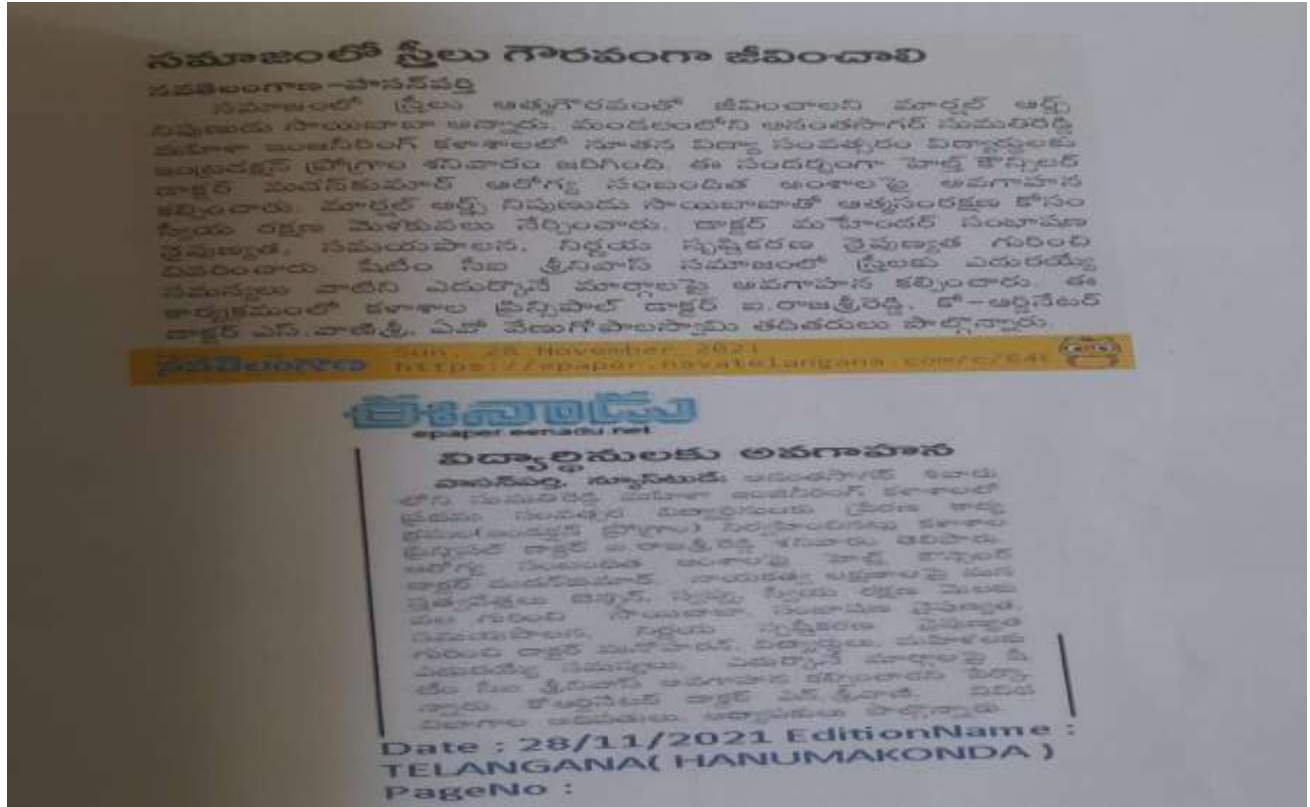 సమాజంలో స్త్రీలు గౌరవంగా జీవించాలి
నవతెలంగాణ-హసన్‌పర్తి
సమాజంలో స్త్రీలు ఆత్మగౌరవంతో జీవించాలని మార్షల్ ఆర్ట్స్
నిపుణుడు సాయిబాబా అన్నారు. మండలంలోని అనంతసాగర్ సుమతిరెడ్డి
మహిళా ఇంజనీరింగ్ కళాశాలలో నూతన విద్యా సంవత్సరం విద్యార్థులకు
ఇంట్రడక్షన్ ప్రోగ్రాం శనివారం జరిగింది. ఈ సందర్భంగా హెల్త్ కౌన్సిలర్
డాక్టర్ మదన్‌కుమార్ ఆరోగ్య సంబంధిత అంశాలపై అవగాహన
కల్పించారు. మార్షల్ ఆర్ట్స్ నిపుణుడు సాయిబాబాతో ఆత్మసంరక్షణ కోసం
స్వీయ రక్షణ మెళకువలు నేర్పించారు. డాక్టర్ మహేందర్ సంభాషణ
నైపుణ్యత, సమయపాలన, నిర్ణయ స్పష్టికరణ నైపుణ్యత గురించి
వివరించారు. షీటీం సీఐ శ్రీనివాస్ సమాజంలో స్త్రీలకు ఎదురయ్యే
సమస్యలు వాటిని ఎదుర్కొనే మార్గాలపై అవగాహన కల్పించారు. ఈ
కార్యక్రమంలో కళాశాల ప్రిన్సిపాల్ డాక్టర్ ఐ.రాజశ్రీరెడ్డి, కో-ఆర్డినేటర్
డాక్టర్ ఎస్.వాణిశ్రీ, ఏవో వేణుగోపాలస్వామి తదితరులు పాల్గొన్నారు.
నవతెలంగాణ Sun, 28 November 2021
https://epaper.navatelangana.com/c/640
ఈనాడు
epaper.eenadu.net
విద్యార్థినులకు అవగాహన
హసన్‌పర్తి, న్యూస్‌టుడే: అనంతసాగర్ శివారు
లోని సుమతిరెడ్డి మహిళా ఇంజినీరింగ్ కళాశాలలో
ప్రథమ సంవత్సర విద్యార్థినులకు ప్రేరణ కార్య
క్రమం(ఇండక్షన్ ప్రోగ్రాం) నిర్వహించినట్లు కళాశాల
ప్రిన్సిపల్ డాక్టర్ ఐ.రాజశ్రీరెడ్డి శనివారం తెలిపారు.
ఆరోగ్య సంబంధిత అంశాలపై హెల్త్ కౌన్సెలర్
డాక్టర్ మదన్‌కుమార్, నాయకత్వ లక్షణాలపై
స్వీయ రక్షణ మెలకు
వల గురించి సాయిబాబా, సంభాషణ నైపుణ్యత,
సమయపాలన, నిర్ణయ స్పష్టీకరణ నైపుణ్యత
గురించి డాక్టర్ మనోహర్, విద్యార్థులు, మహిళలకు
ఎదురయ్యే సమస్యలు, ఎదుర్కొనే మార్గాలపై షీ
టీం సీఐ శ్రీనివాస్ అవగాహన కల్పించారని పేర్కొ
న్నారు. కోఆర్డినేటర్ డాక్టర్ ఎస్.శ్రీవాణి, వివిధ
విభాగాల అధిపతులు, అధ్యాపకులు పాల్గొన్నారు.
Date : 28/11/2021 EditionName :
TELANGANA( HANUMAKONDA )
PageNo :